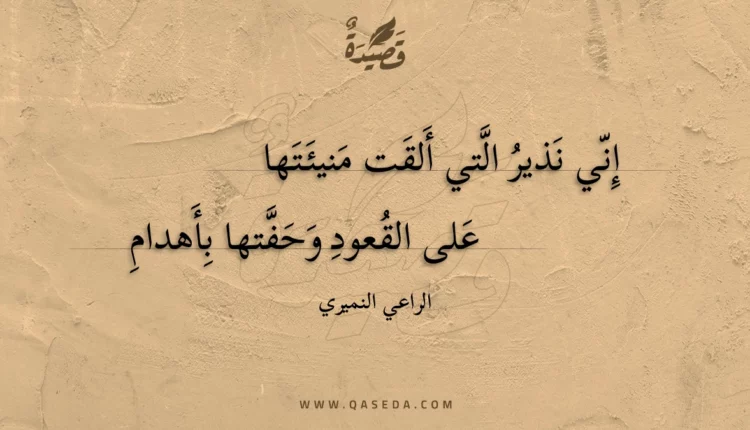 قَصِيْدَةٌ
إِنّي نَذيرُ الَّتي أَلقَت مَنيئَتَها
عَلى القُعودِ وَحَفَّتها بِأَهدامِ
الراعي النميري
WWW.QASEDA.COM